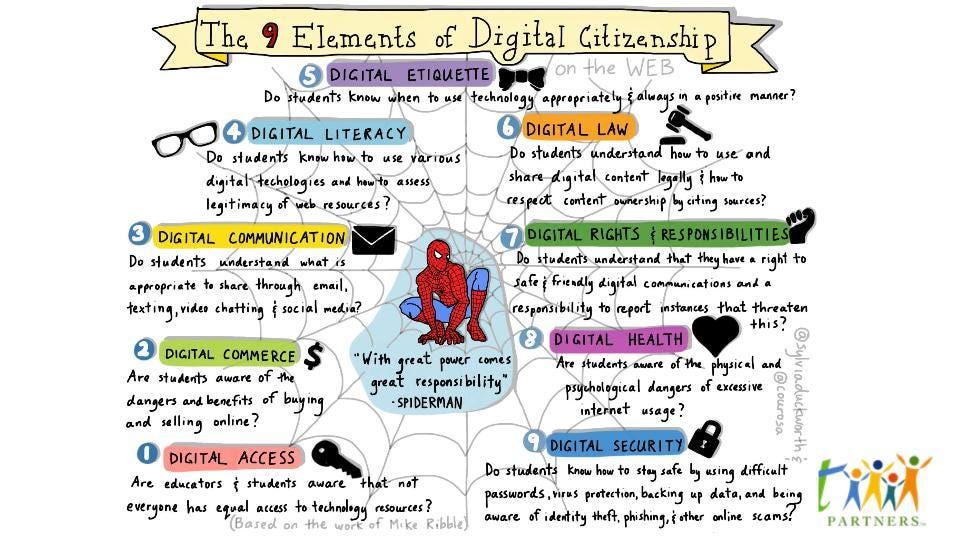 The 9 Elements of Digital Citizenship
on the WEB
5 DIGITAL ETIQUETTE
Do students know when to use technology appropriately & always in a positive manner?
4 DIGITAL LITERACY
Do students know how to use various
digital techologies and how to assess
legitimacy of web resources?
6 DIGITAL LAW
Do students understand how to use and
share digital content legally & how to
respect content ownership by citing sources?
3 DIGITAL COMMUNICATION
Do students understand what is
appropriate to share through email,
texting, video chatting & social media?
7 DIGITAL RIGHTS & RESPONSIBILITIES
Do students understand that they have a right to
safe & friendly digital communications and a
responsibility to report instances that threaten
this?
2 DIGITAL COMMERCE $
Are students aware of the
dangers and benefits of buying
and selling online?
"With great power comes
great responsibility"
-SPIDERMAN
8 DIGITAL HEALTH
Are students aware of the physical and
psychological dangers of excessive
internet usage?
1 DIGITAL ACCESS
Are educators & students aware that not
everyone has equal access to technology resources?
(Based on the work of Mike Ribble)
9 DIGITAL SECURITY
Do students know how to stay safe by using difficult
passwords, virus protection, backing up data, and being
aware of identity theft, phishing, & other online scams?
@sylviaduckworth &
@courosa
t
PARTNERS